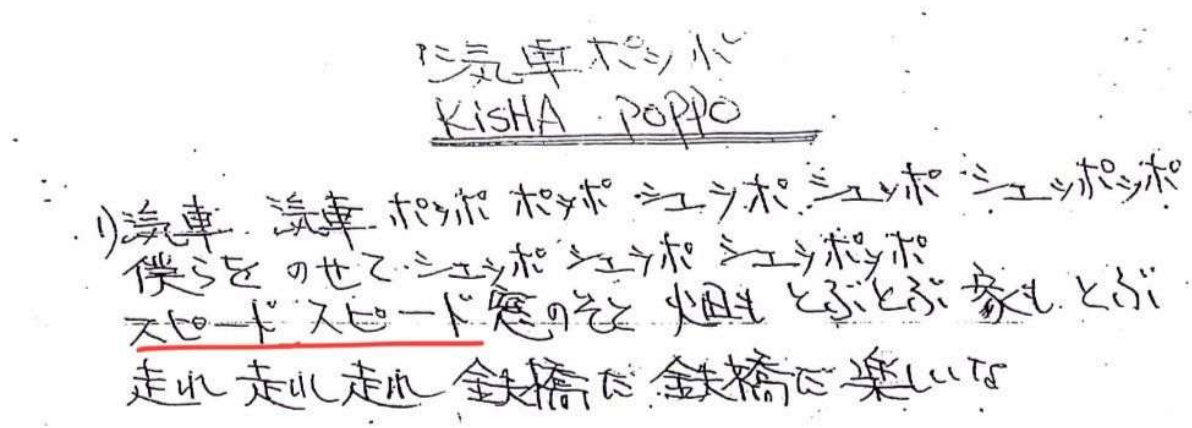 汽車ポッポ
KiSHA POPPO
1) 汽車 汽車 ポッポ ポッポ シュッポ シュッポ シュッポッポ
僕らを のせて シュッポ シュッポ シュッポッポ
スピード スピード 窓のそと 畑も とぶとぶ 家も とぶ
走れ 走れ 走れ 鉄橋だ 鉄橋だ 楽しいな